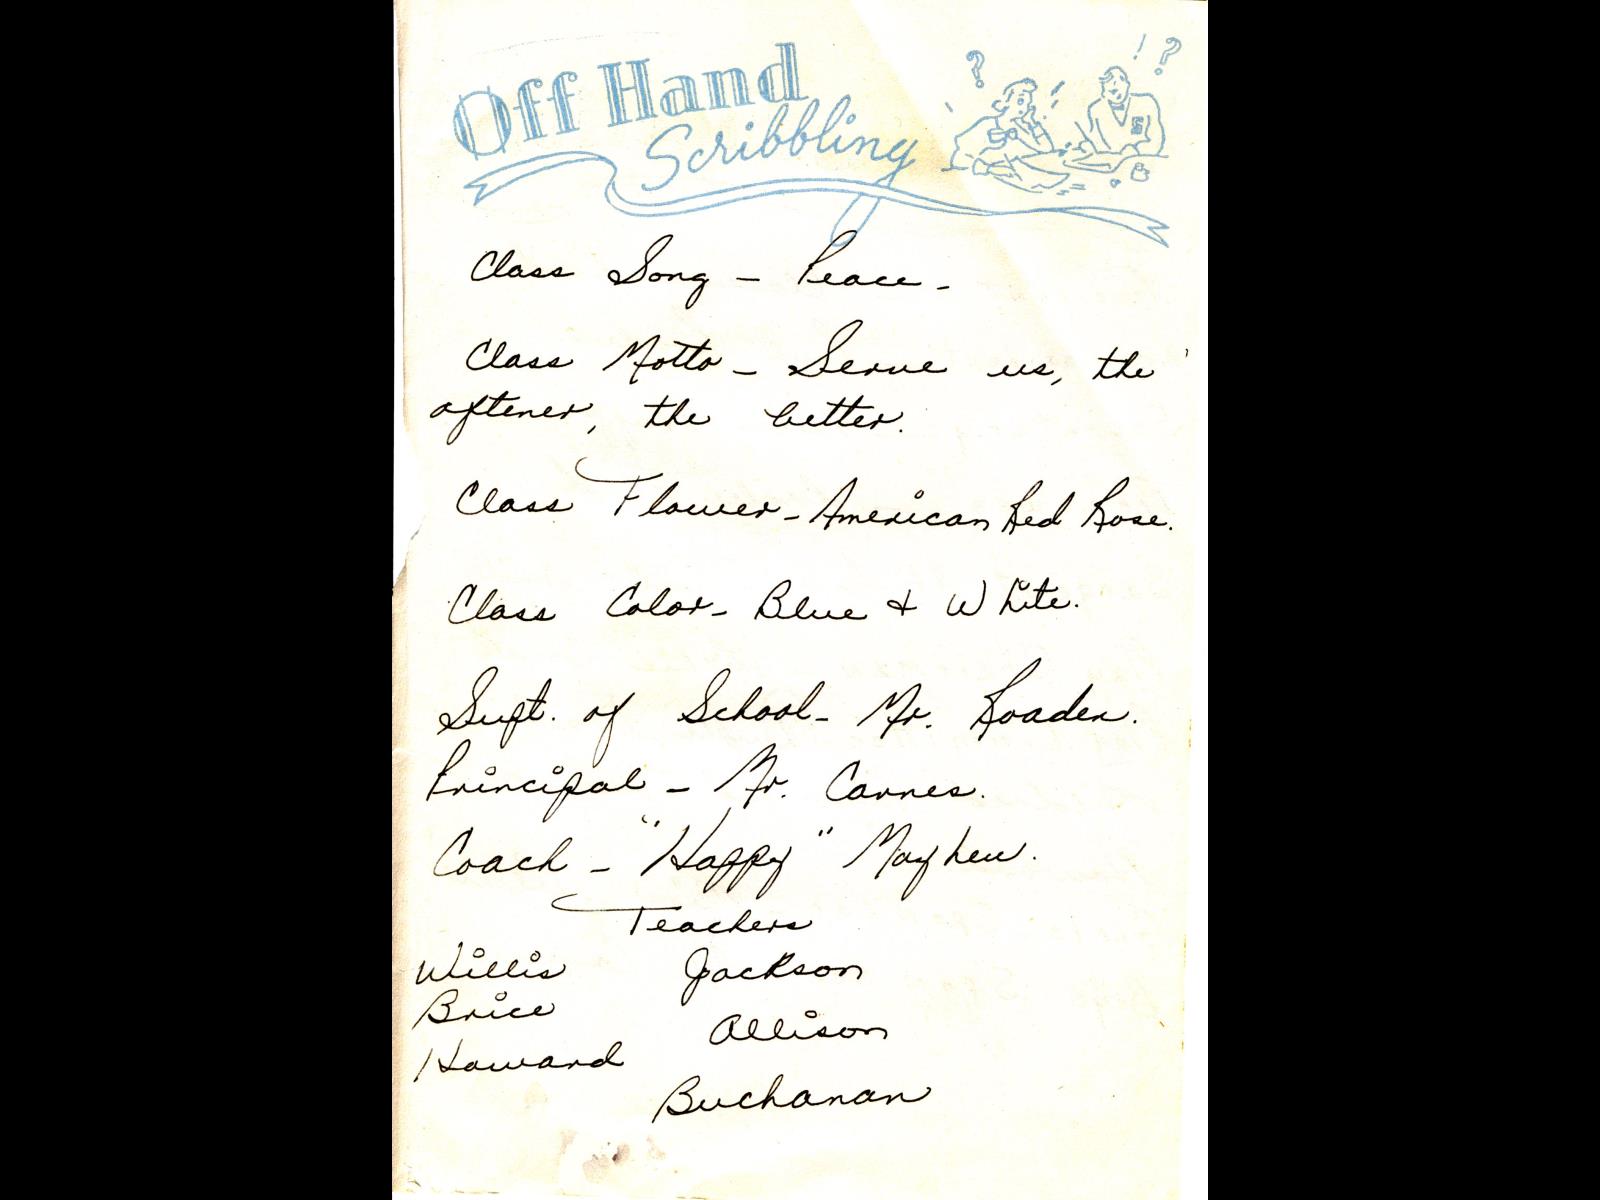 Off Hand
Scribbling
? ! ?
Class Song - Peace -
Class Motto - Serve us, the
oftener, the better.
Class Flower - American Red Rose.
Class Color - Blue & White.
Supt. of School - Mr. Roaden.
Principal - Mr. Carnes.
Coach - "Happy" Mayhew.
Teachers
Willis Jackson
Brice
Allison
Howard
Buchanan